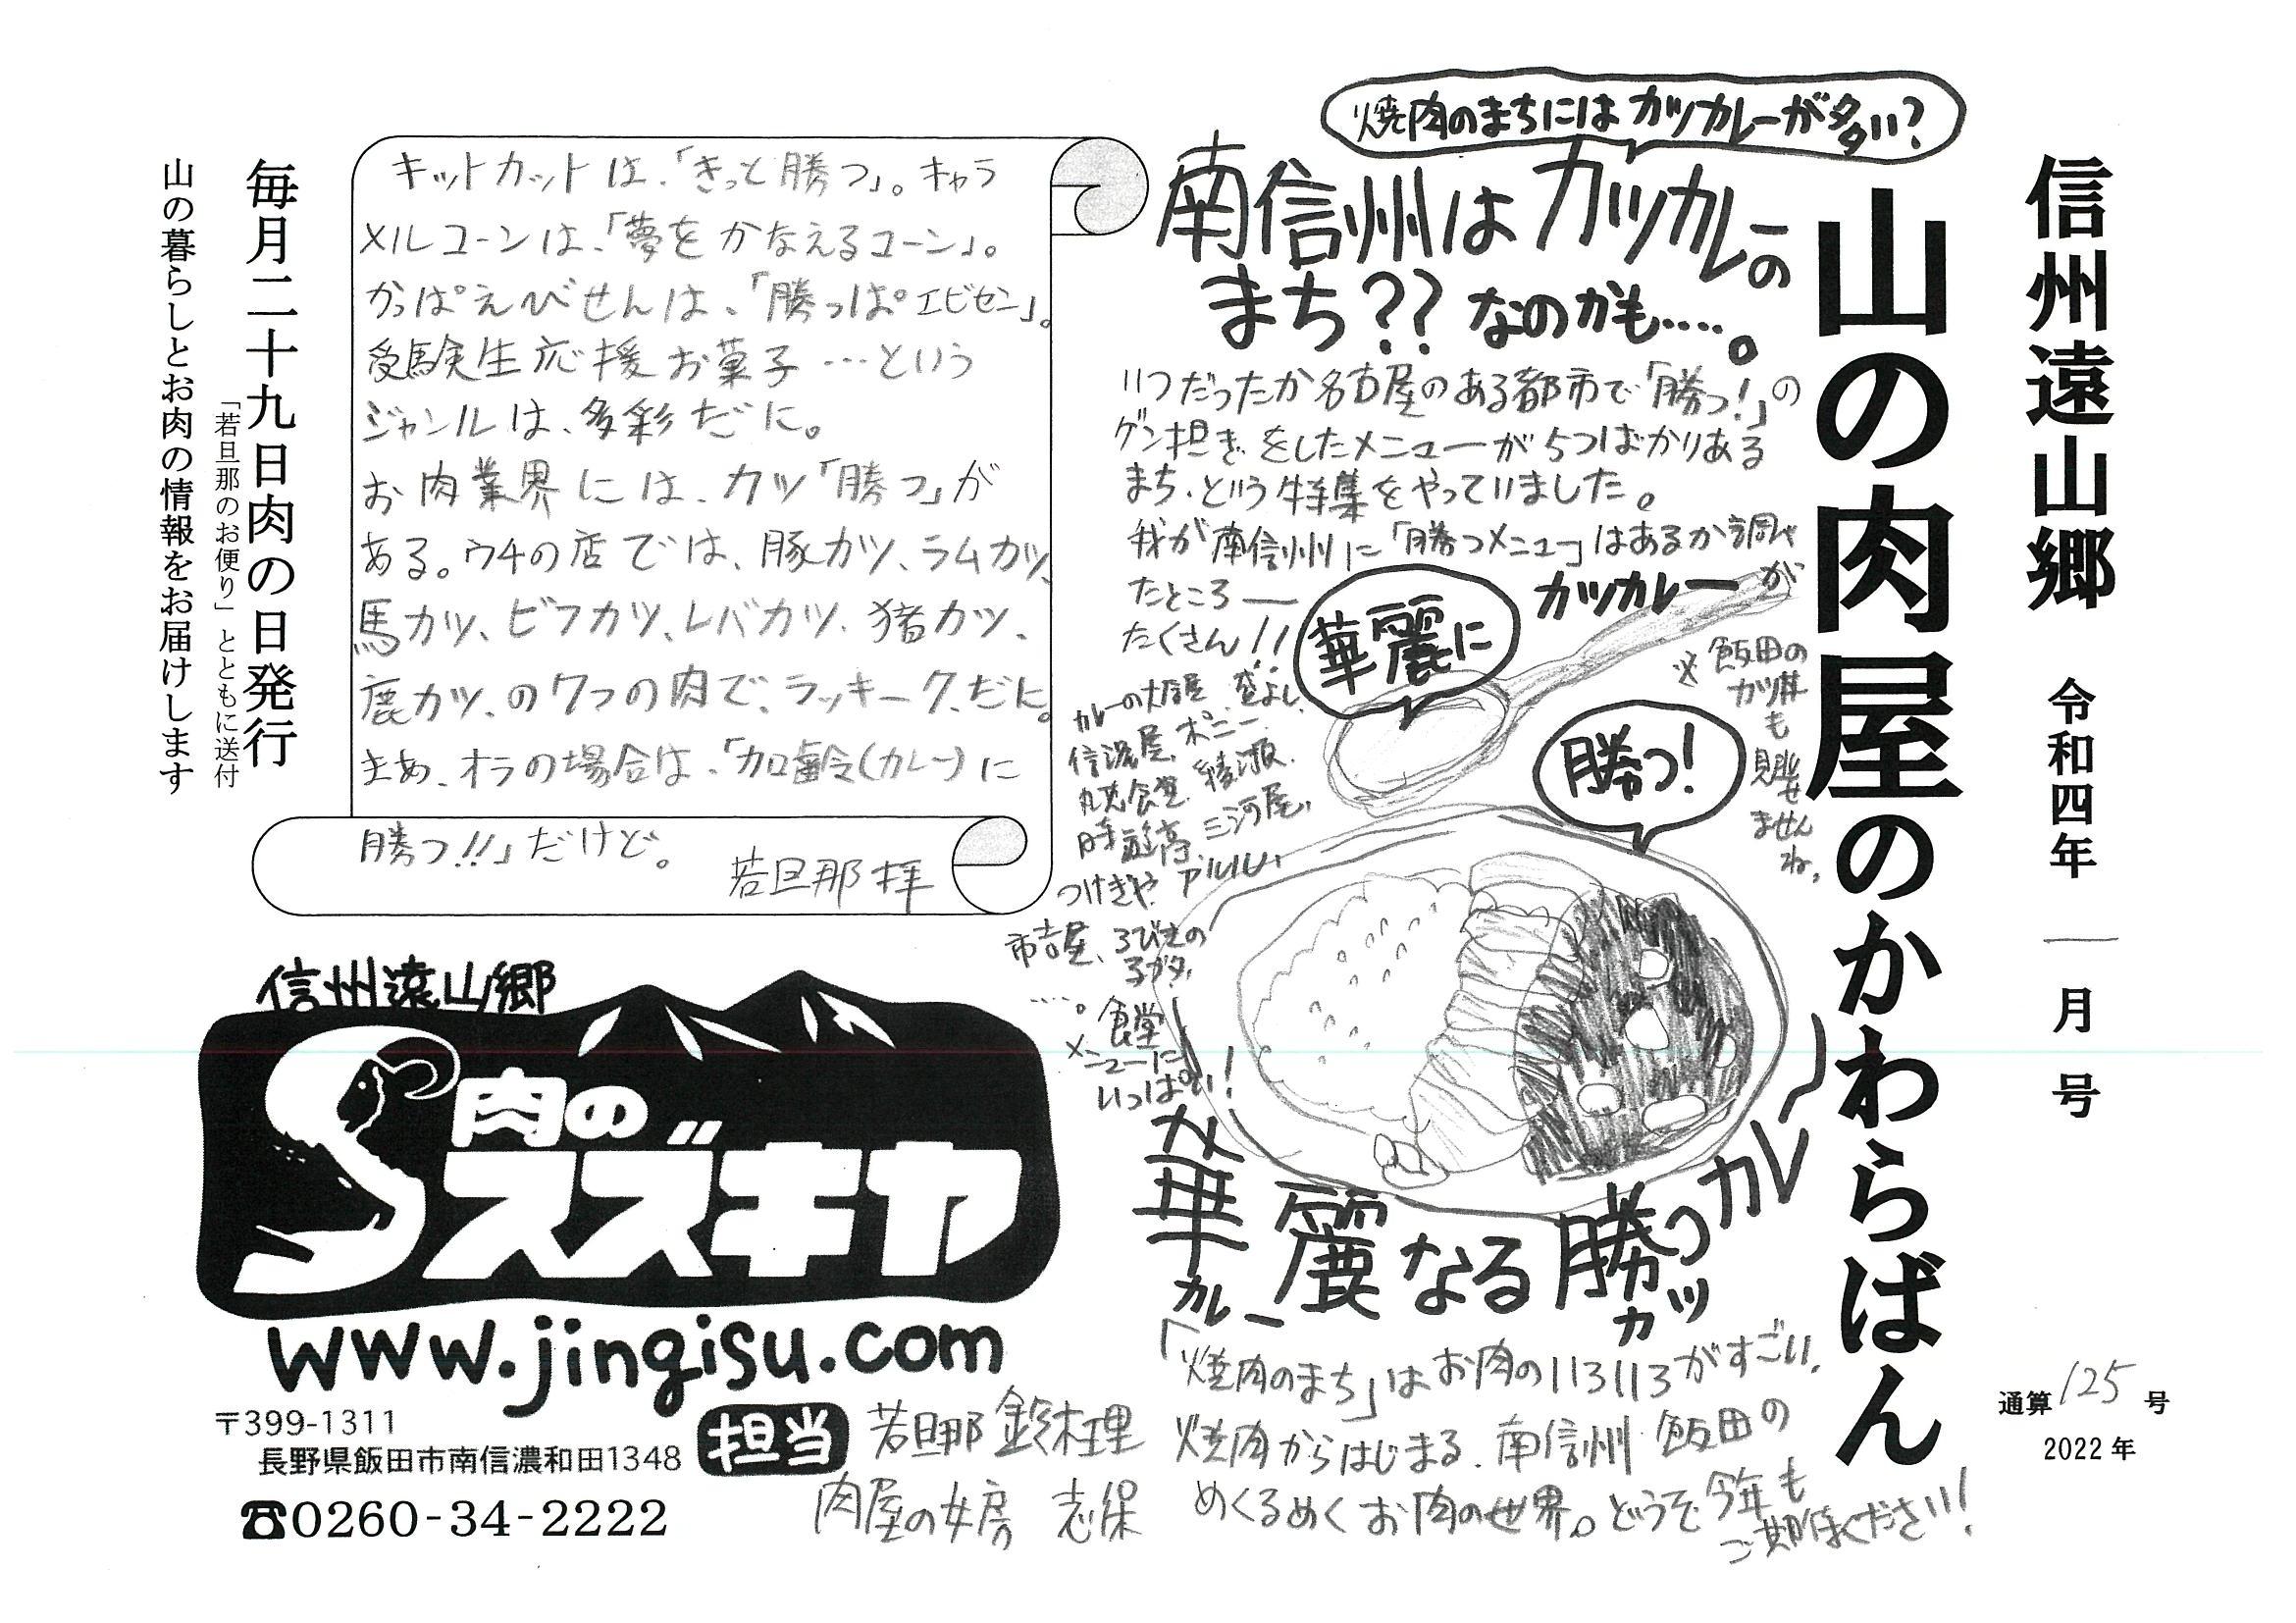 信州遠山郷 令和四年 一月号
通算125号
2022年
山の肉屋のかわらばん
焼肉のまちにはカツカレーが多い?
南信州はカツカレーの
まち??なのかも‥‥。
いつだったか名古屋のある都市で「勝つ!」の
ゲン担ぎをしたメニューが5つばかりある
まち、という特集をやっていました。
我が南信州に「勝つメニュー」はあるか調べ
たところ――
カツカレーが
たくさん!!
華麗に
勝つ!
※飯田の
カツ丼
も
見逃せ
ません
ね。
カレーの大原屋、
信濃屋、ポニー、綾瀬、
丸忠食堂、三河屋、
時遊亭、アルル、
つけぎや、
市吉屋、ろびえの
‥‥。
食堂
メニューに
いっぱい!
華麗なる勝つカレー
カレー
カツ
「焼肉のまち」はお肉のいろいろがすごい。
焼肉からはじまる、南信州 飯田の
めくるめくお肉の世界。どうぞ今年も
ご期待ください!
キットカットは、「きっと勝つ」。キャラ
メルコーンは、「夢をかなえるコーン」。
かっぱえびせんは、「勝っぱエビセン」。
受験生応援お菓子…という
ジャンルは、多彩だに。
お肉業界には、カツ「勝つ」が
ある。ウチの店では、豚カツ、ラムカツ、
馬カツ、ビフカツ、レバカツ、猪カツ、
鹿カツ、の7つの肉で、ラッキー7、だに。
まぁ、オラの場合は、「加齢(カレー)に
勝つ!!」だけど。
若旦那 拝
毎月二十九日肉の日発行
「若旦那のお便り」とともに送付
山の暮らしとお肉の情報をお届けします
信州遠山郷
肉の
スズキヤ
www.jingisu.com
〒399-1311
長野県飯田市南信濃和田1348
☎0260-34-2222
担当
若旦那 鈴木理
肉屋の女房 志保